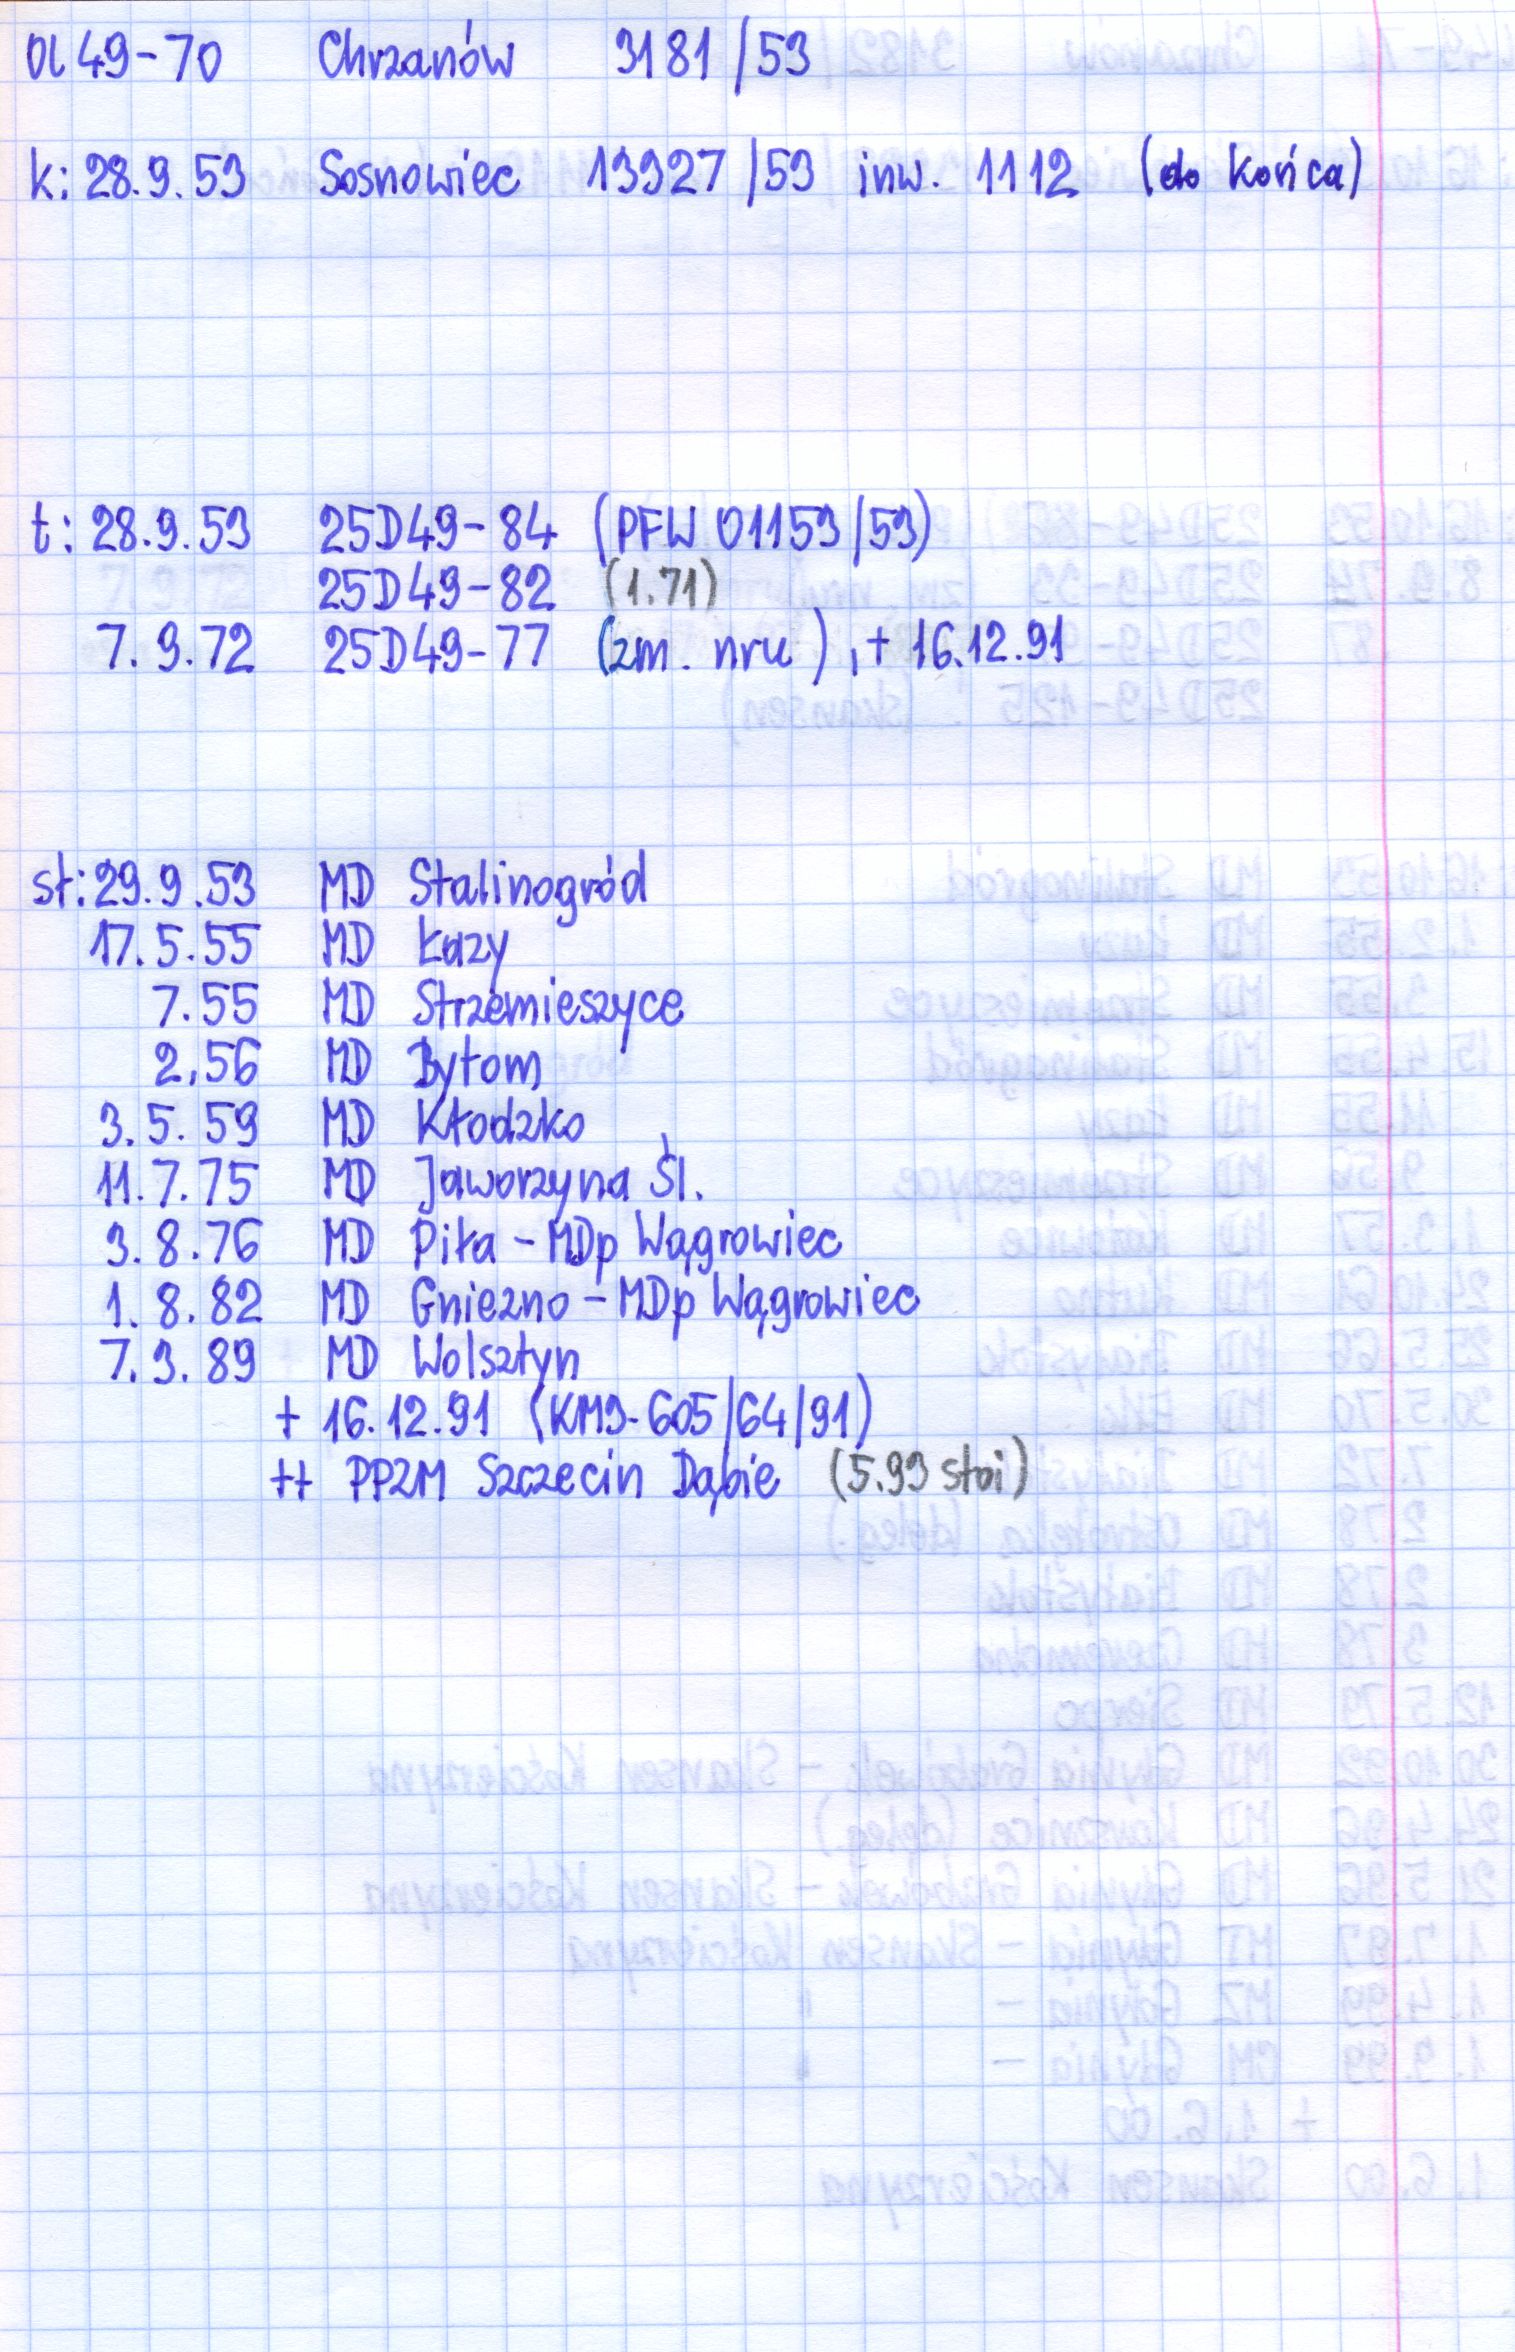 Ol 49-70 Chrzanów 3181/53
k: 28.9.53 Sosnowiec 13927/53 inw. 1112 (do końca)
t: 28.9.53 25D49-84 (PFW 01153/53)
25D49-82 (1.71)
7.9.72 25D49-77 (zm. nru), + 16.12.91
st: 29.9.53 MD Stalinogród
17.5.55 MD Łazy
7.55 MD Strzemieszyce
2.56 MD Bytom
3.5.59 MD Kłodzko
11.7.75 MD Jaworzyna Śl.
3.8.76 MD Piła - MDp Wągrowiec
1.8.82 MD Gniezno - MDp Wągrowiec
7.3.89 MD Wolsztyn
+ 16.12.91 (KM9-605/64/91)
++ PPZM Szczecin Dąbie (5.93 stoi)